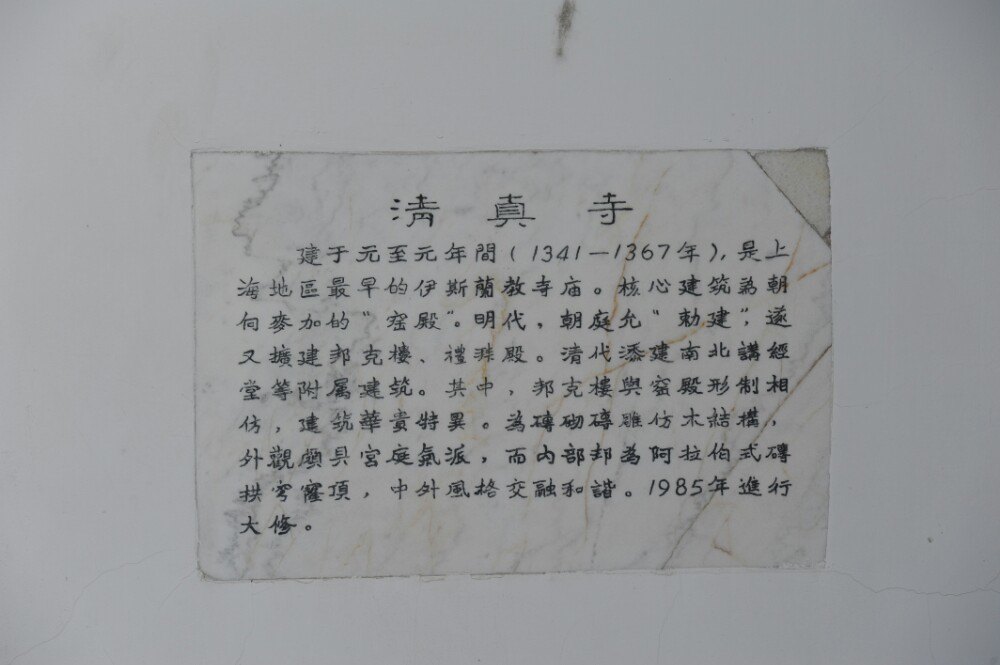 清真寺
建于元至元年間(1341—1367年),是上
海地區最早的伊斯蘭教寺庙。核心建筑為朝
向麥加的“窑殿”。明代,朝庭允“勅建”,遂
又擴建邦克樓、禮拜殿。清代添建南北講經
堂等附属建筑。其中,邦克樓與窑殿形制相
仿,建筑華貴特異。為磚砌磚雕仿木結構,
外觀頗具宮庭氣派,而内部却為阿拉伯式磚
拱穹窿頂,中外風格交融和諧。1985年進行
大修。